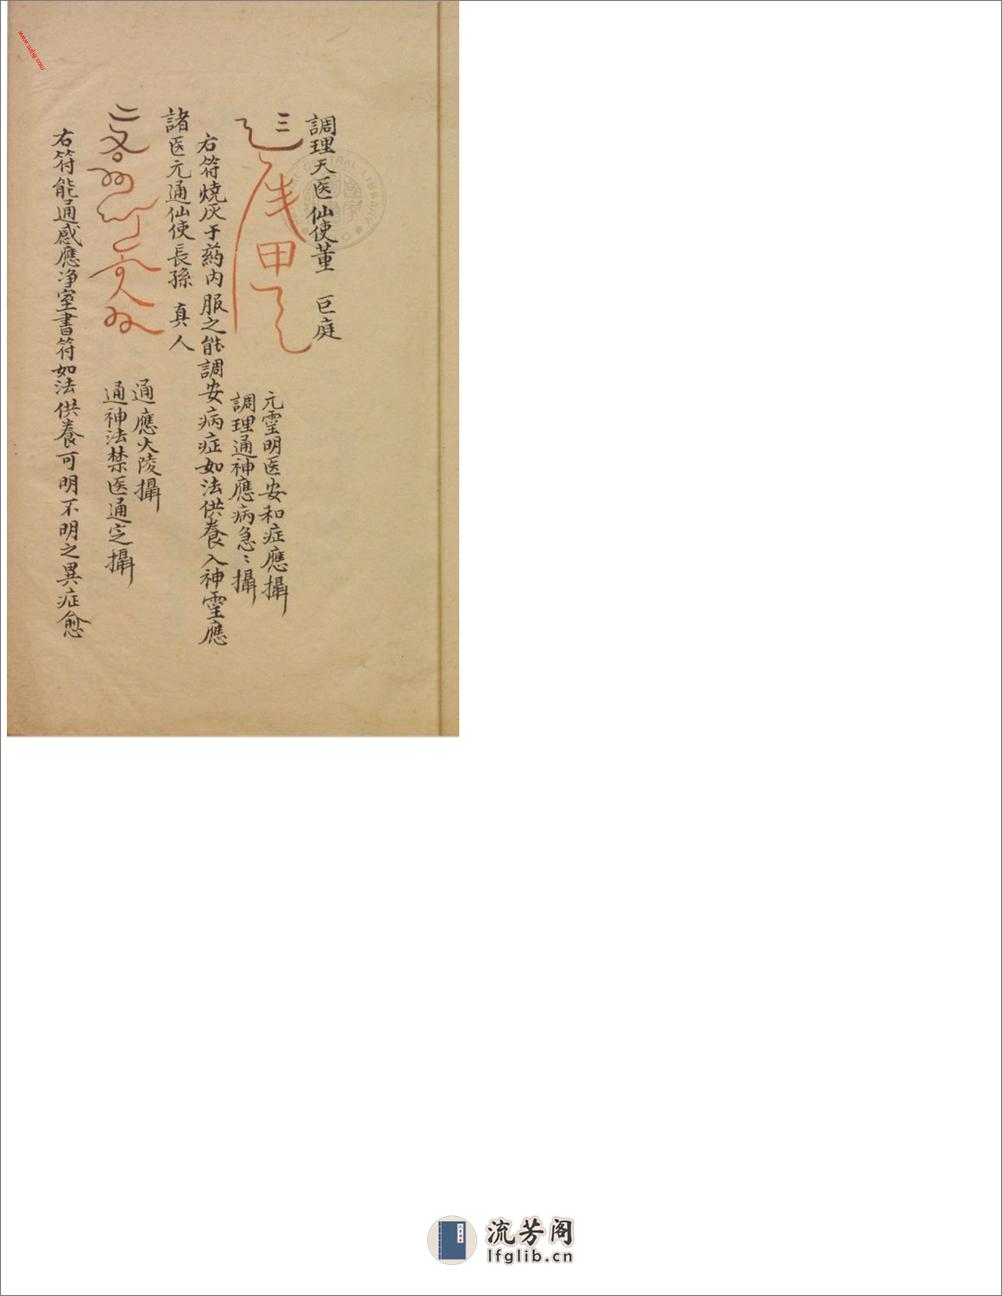 調理天医仙使董 巨庭
元霊明医安和症應攝
調理通神應病急〻攝
右符燒灰于葯内服之能調安病症如法供養入神霊應
諸医元通仙使長孫 真人
通應大陵攝
通神法禁医通定攝
右符能通感應净室書符如法供養可明不明之異症愈
流芳阁
lfglib.cn